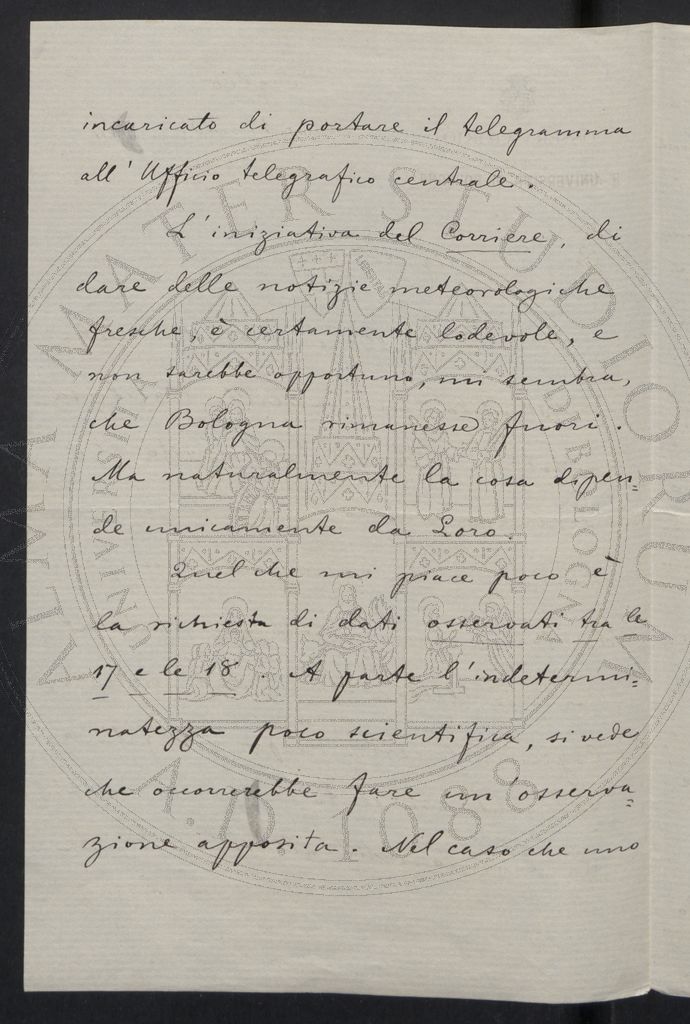 incaricato di portare il telegramma
all' Ufficio telegrafico centrale.
L' iniziativa del Corriere, di
dare delle notizie meteorologiche
fresche, è certamente lodevole, e
non sarebbe opportuno, mi sembra,
che Bologna rimanesse fuori.
Ma naturalmente la cosa dipen=
de unicamente da Loro.
Quel che mi piace poco è
la richiesta di dati osservati tra le
17 e le 18. A parte l'indetermi=
natezza poco scientifica, si vede
che occorrerebbe fare un'osserva=
zione apposita. Nel caso che uno
ALMA MATER STUDIORUM
UNIVERSITÀ DI BOLOGNA
A.D. 1088